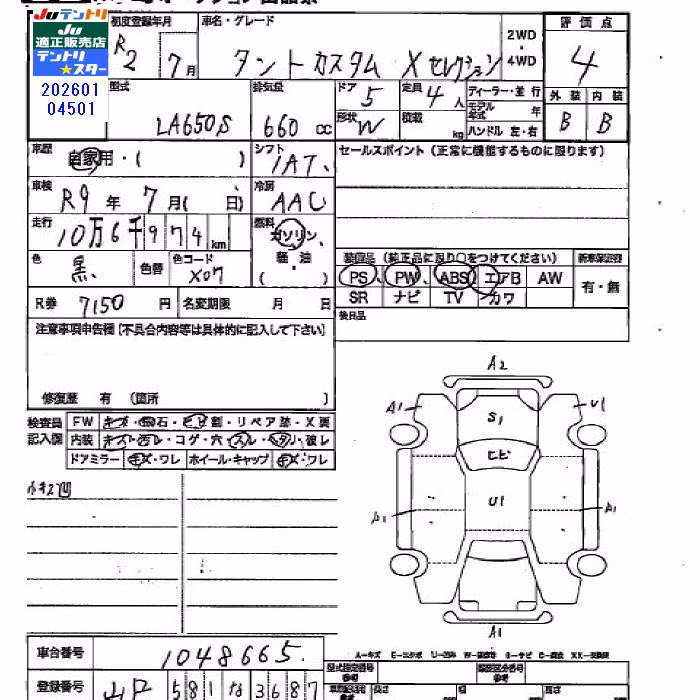 JUテントリ
JU
適正販売店
テントリ
★スター
202601
04501
初度登録年月
R2 7月
車名・グレード
タント カスタム Xセレクション
2WD
・
4WD
評価点
4
型式
LA650S
排気量
660 cc
ドア
5
定員
4人
形状
W
積載
kg
ディーラー・並行
モデル年式
年
ハンドル 左・右
外装 内装
B B
車歴
自家用・( )
シフト
IAT
セールスポイント (正常に機能するものに限ります)
車検
R9年 7月( 日)
冷房
AAC
走行
10万6千974km
燃料
ガソリン
軽・油
( )
色
黒
色替
色コード
X07
装備品 (純正品に限り○をつけてください)
新車保証書
PS PW ABS エアB AW
SR ナビ TV カワ
有・無
R券 7150円
名変期限 月 日
後日品
注意事項申告欄 [不具合内容等は具体的に記入して下さい]
修復歴 有 (箇所
検査員
記入欄
FW キズ・飛石・ヒビ割・リペア跡・X要
内装 キズ・汚レ・コゲ・穴・スレ・ヘタリ・破レ
ドアミラー キズ・ワレ ホイール・キャップ キズ・ワレ
小キズ凹
A2
A1
U1
S1
ヒビ
U1
A1
A1
A1
車台番号
1048665
登録番号
山口 581 な 3687
A-キズ E-エクボ U-凹み W-補修跡 S-サビ C-腐食 XX-交換済
型式指定番号
類別区分番号
長さ
幅
高さ